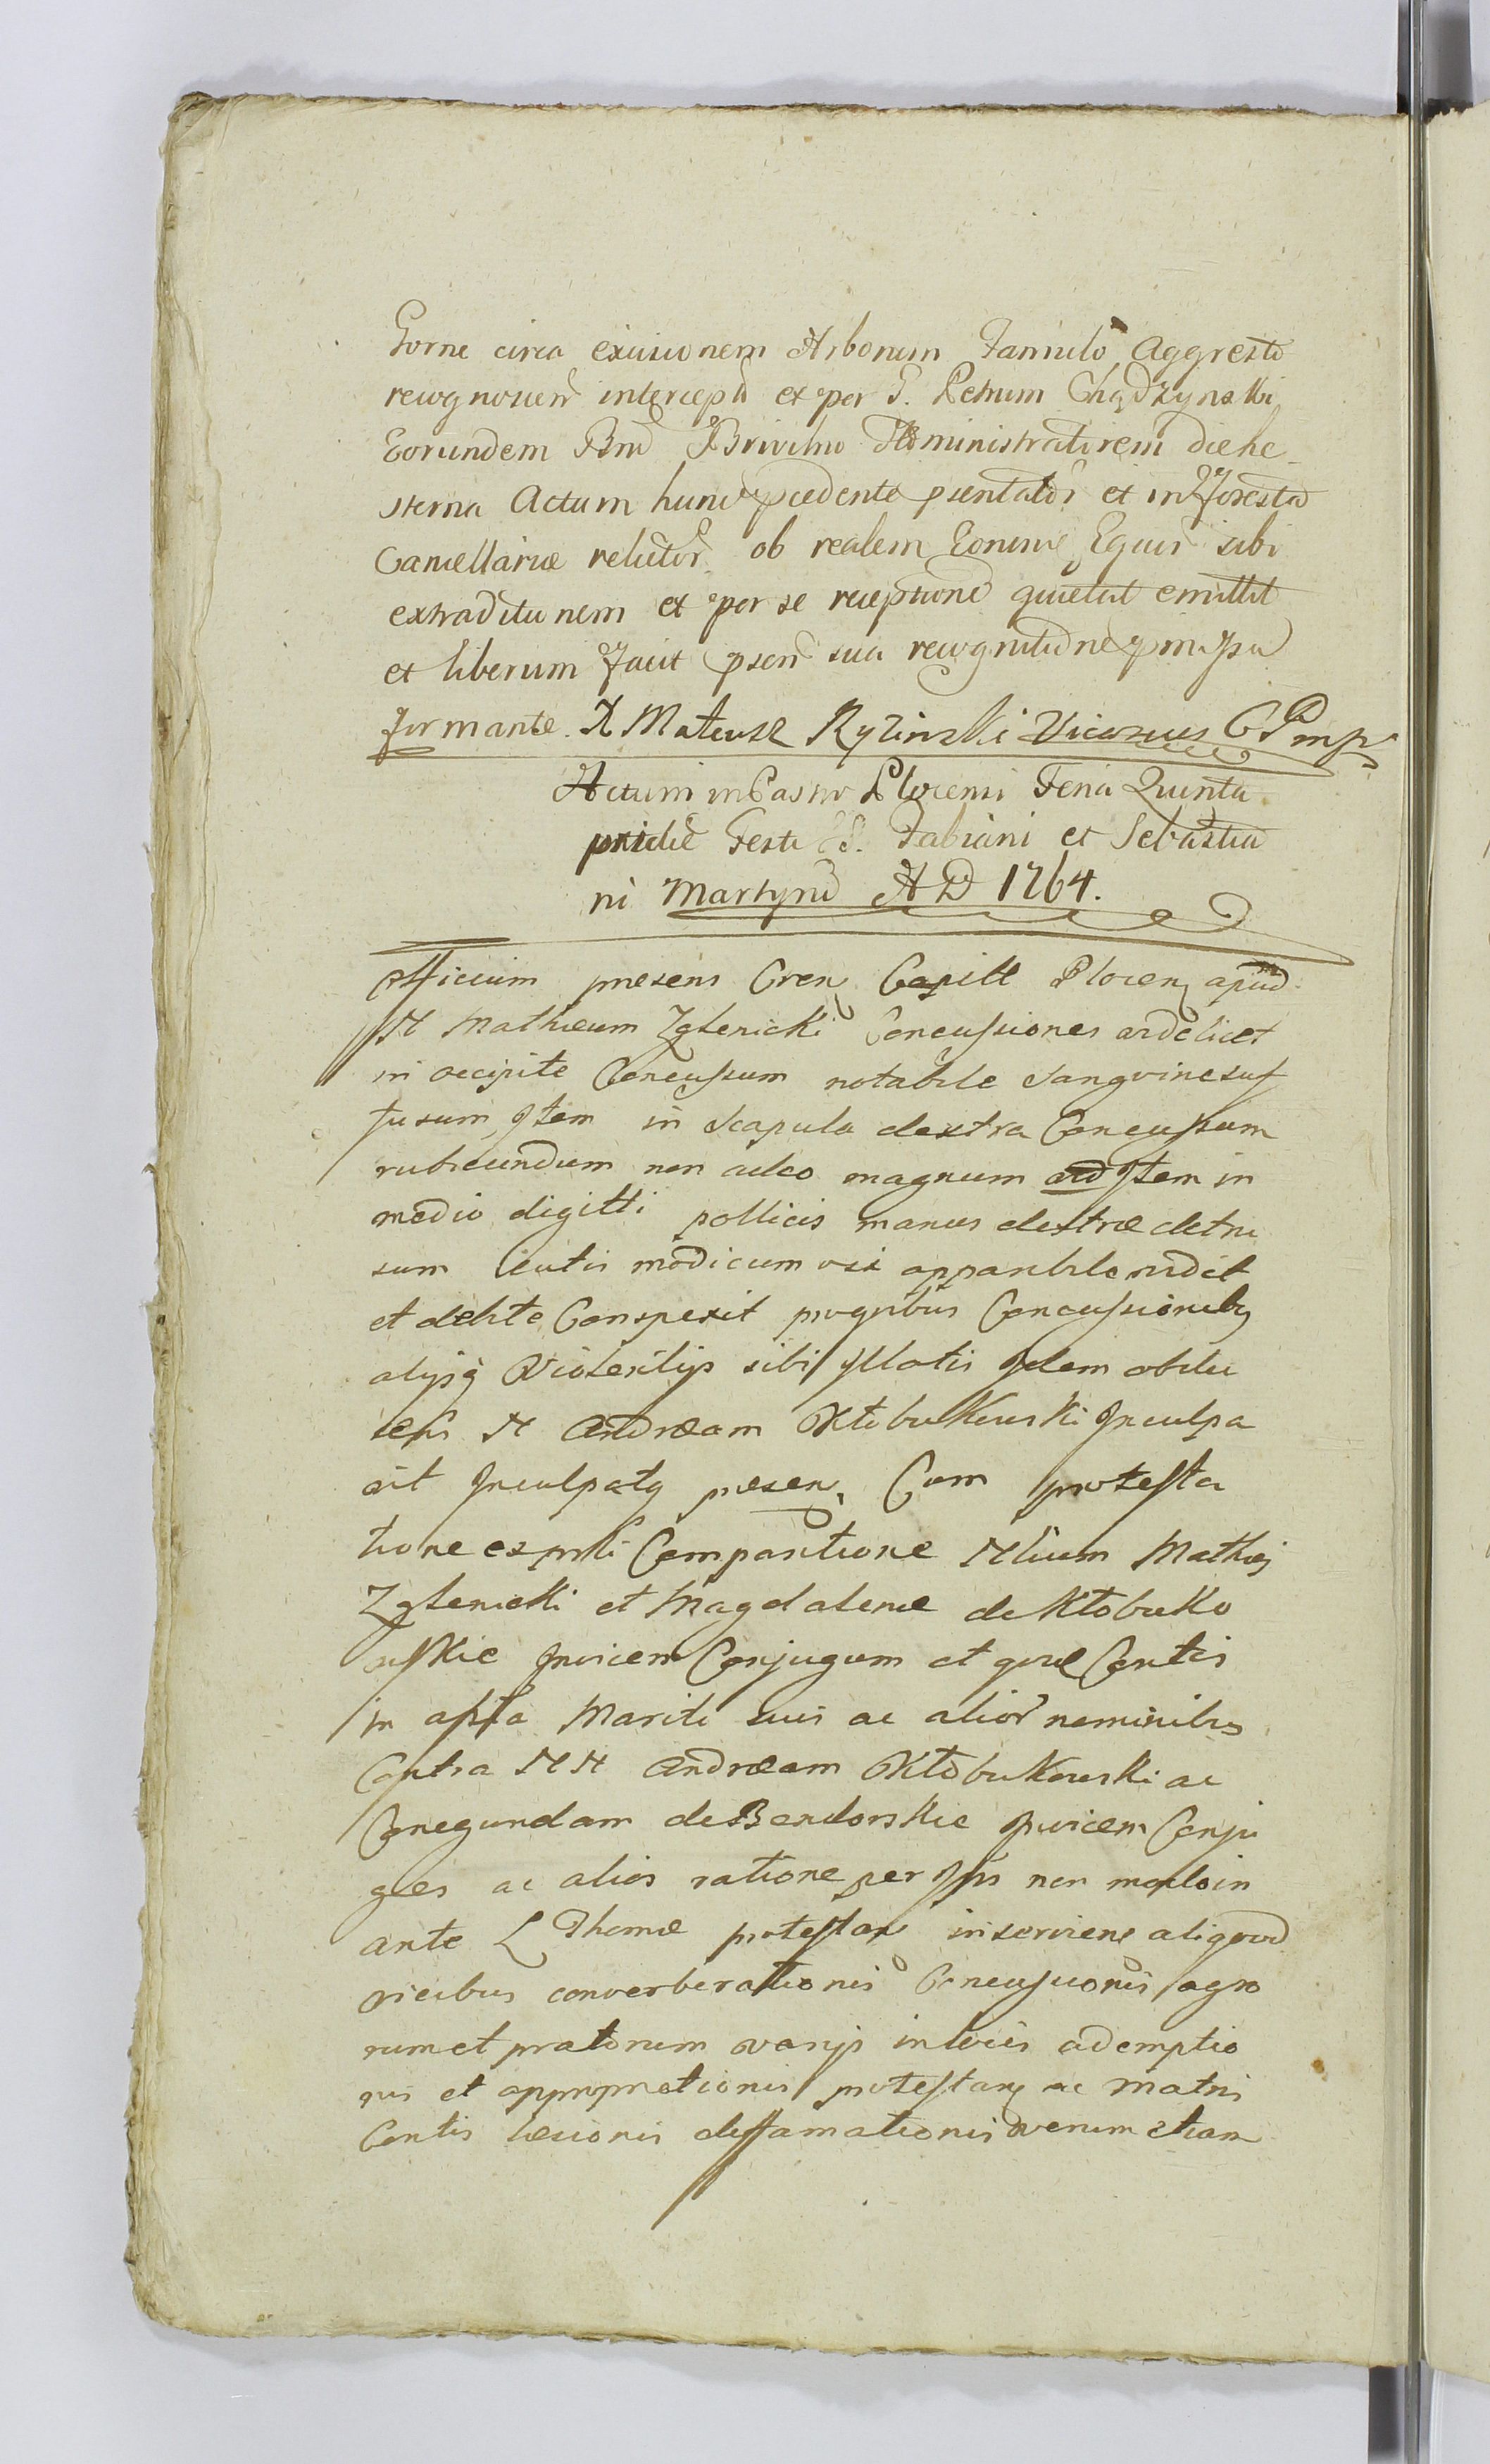 Gorne circa excisionem Arborum Famulo Aggresto
recognoscen intercepto et per G. Petrum Chądzynski
Eorundem Bno Brivilno Administratorem die he
sterna Actum hunc pcedente psentator et in foresta
Cancellariæ relictor ob realem Eorune Equor sibi
extraditionem et per se reception quietat emittit
et liberum facit psen sua recognitione pmissa
formante. X Mateusz Ryzinski Vicarius C P mp
Actum in Castro Plocensi Feria Quinta
pridie Festi S. Fabiani et Sebastia
ni Martyru A D 1764.
Officium presens Cren Capitl Plocen apud
N Mathæum Zglenicki Concussiones ar delicet
in occipite Concussum notabile Sangvine suf
fusum, Item in Scapula dextra Concussum
rubicundum non adeo magnum Item in
medio digitti pollicis manus dextræ detru
sum Cutis modicum vix apparibile vidit
et debite Conspexit pro quibus Concussionibg
alysq Violentijs sibi Illatis Idem obdu
cens N Andræam Kłobukowski Inculpa
vit Inculpatq presen Cum protesta
tione ex psti Comparitione Nlium Mathei
Zglenicki et Magdalenæ de Kłobuko
wskie Invicem Conjugum et quæ Contis
in assta Mariti sui ac alior nominibus
Contra N N Andræam Kłobukowski ac
Conegundam de Bendorskie Invicem Conju
ges ac alios ratione per Ips non modo in
ante L Thomæ protestan inserviens aliquod
vicibus converberationis Concussionis agro
rum et pratorum varijs in locis ademptio
nis et appropriationis protestanq ac Matri
Contis læsionis deffamationis verum etiam